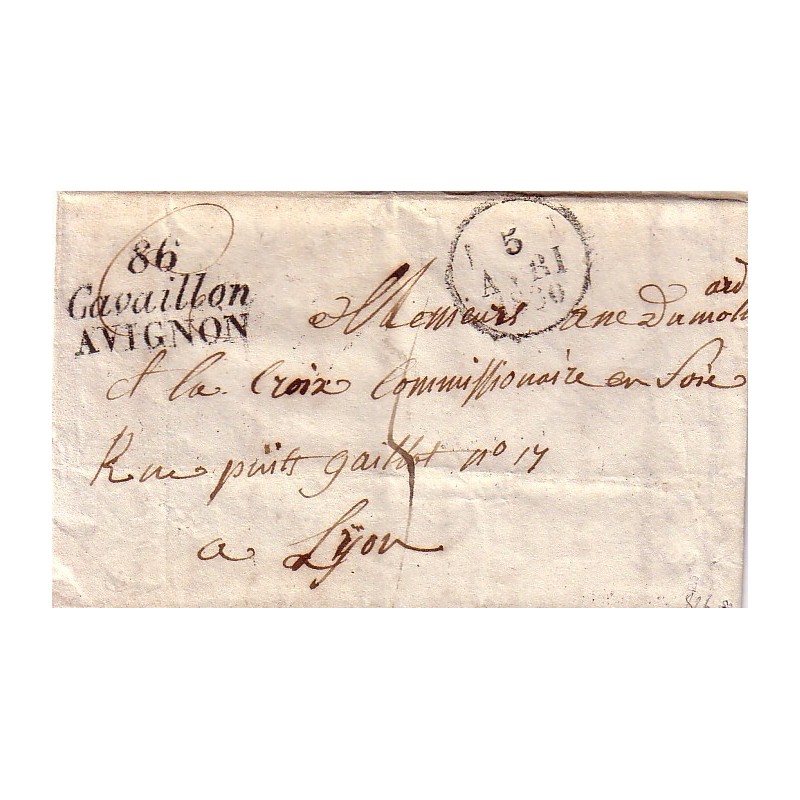 86
Cavaillon
AVIGNON
5
AVRI
1830
Messieurs ane Dumolard
A la Croix Commissionaire en Soie
Rue puits gaillot nº 17
a Lÿon